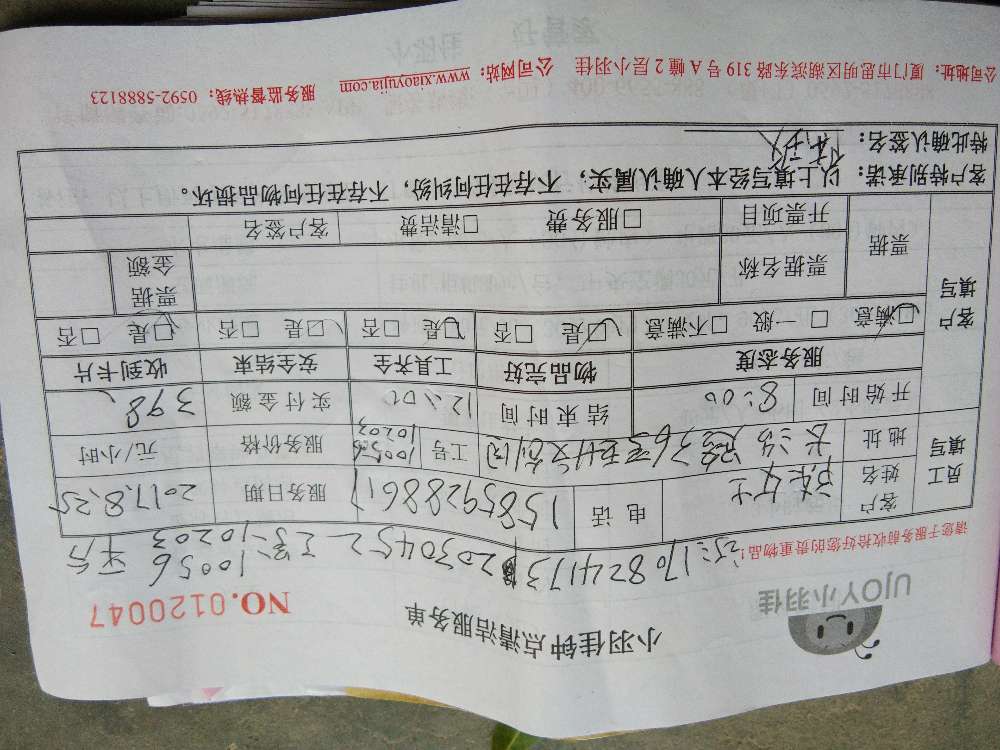 UJOY小羽佳
小羽佳钟点清洁服务单
NO.0120047
请您于服务前收拾好您的贵重物品!
170824173 2030452 10056 10203 平台
员工填写
客户姓名 女士 电话 15859288617 服务日期 2017.8.25
地址 工号 10056 10203 服务价格 元/小时
开始时间 8:00 结束时间 12:00 实付金额 398
客户填写
服务态度 物品完好 工具齐全 安全结束 收到卡片
☑满意 □一般 □不满意 ☑是 □否 ☑是 □否 ☑是 □否 ☑是 □否
票据 票据名称 票据金额
开票项目 □服务费 □清洁费 客户签名
客户特别承诺: 以上填写经本人确认属实,不存在任何纠纷,不存在任何物品损坏。
特此确认签名:
公司地址:厦门市思明区湖滨东路319号A幢2层小羽佳 公司网站:www.xiaoyujia.com 服务监督热线:0592-5888123